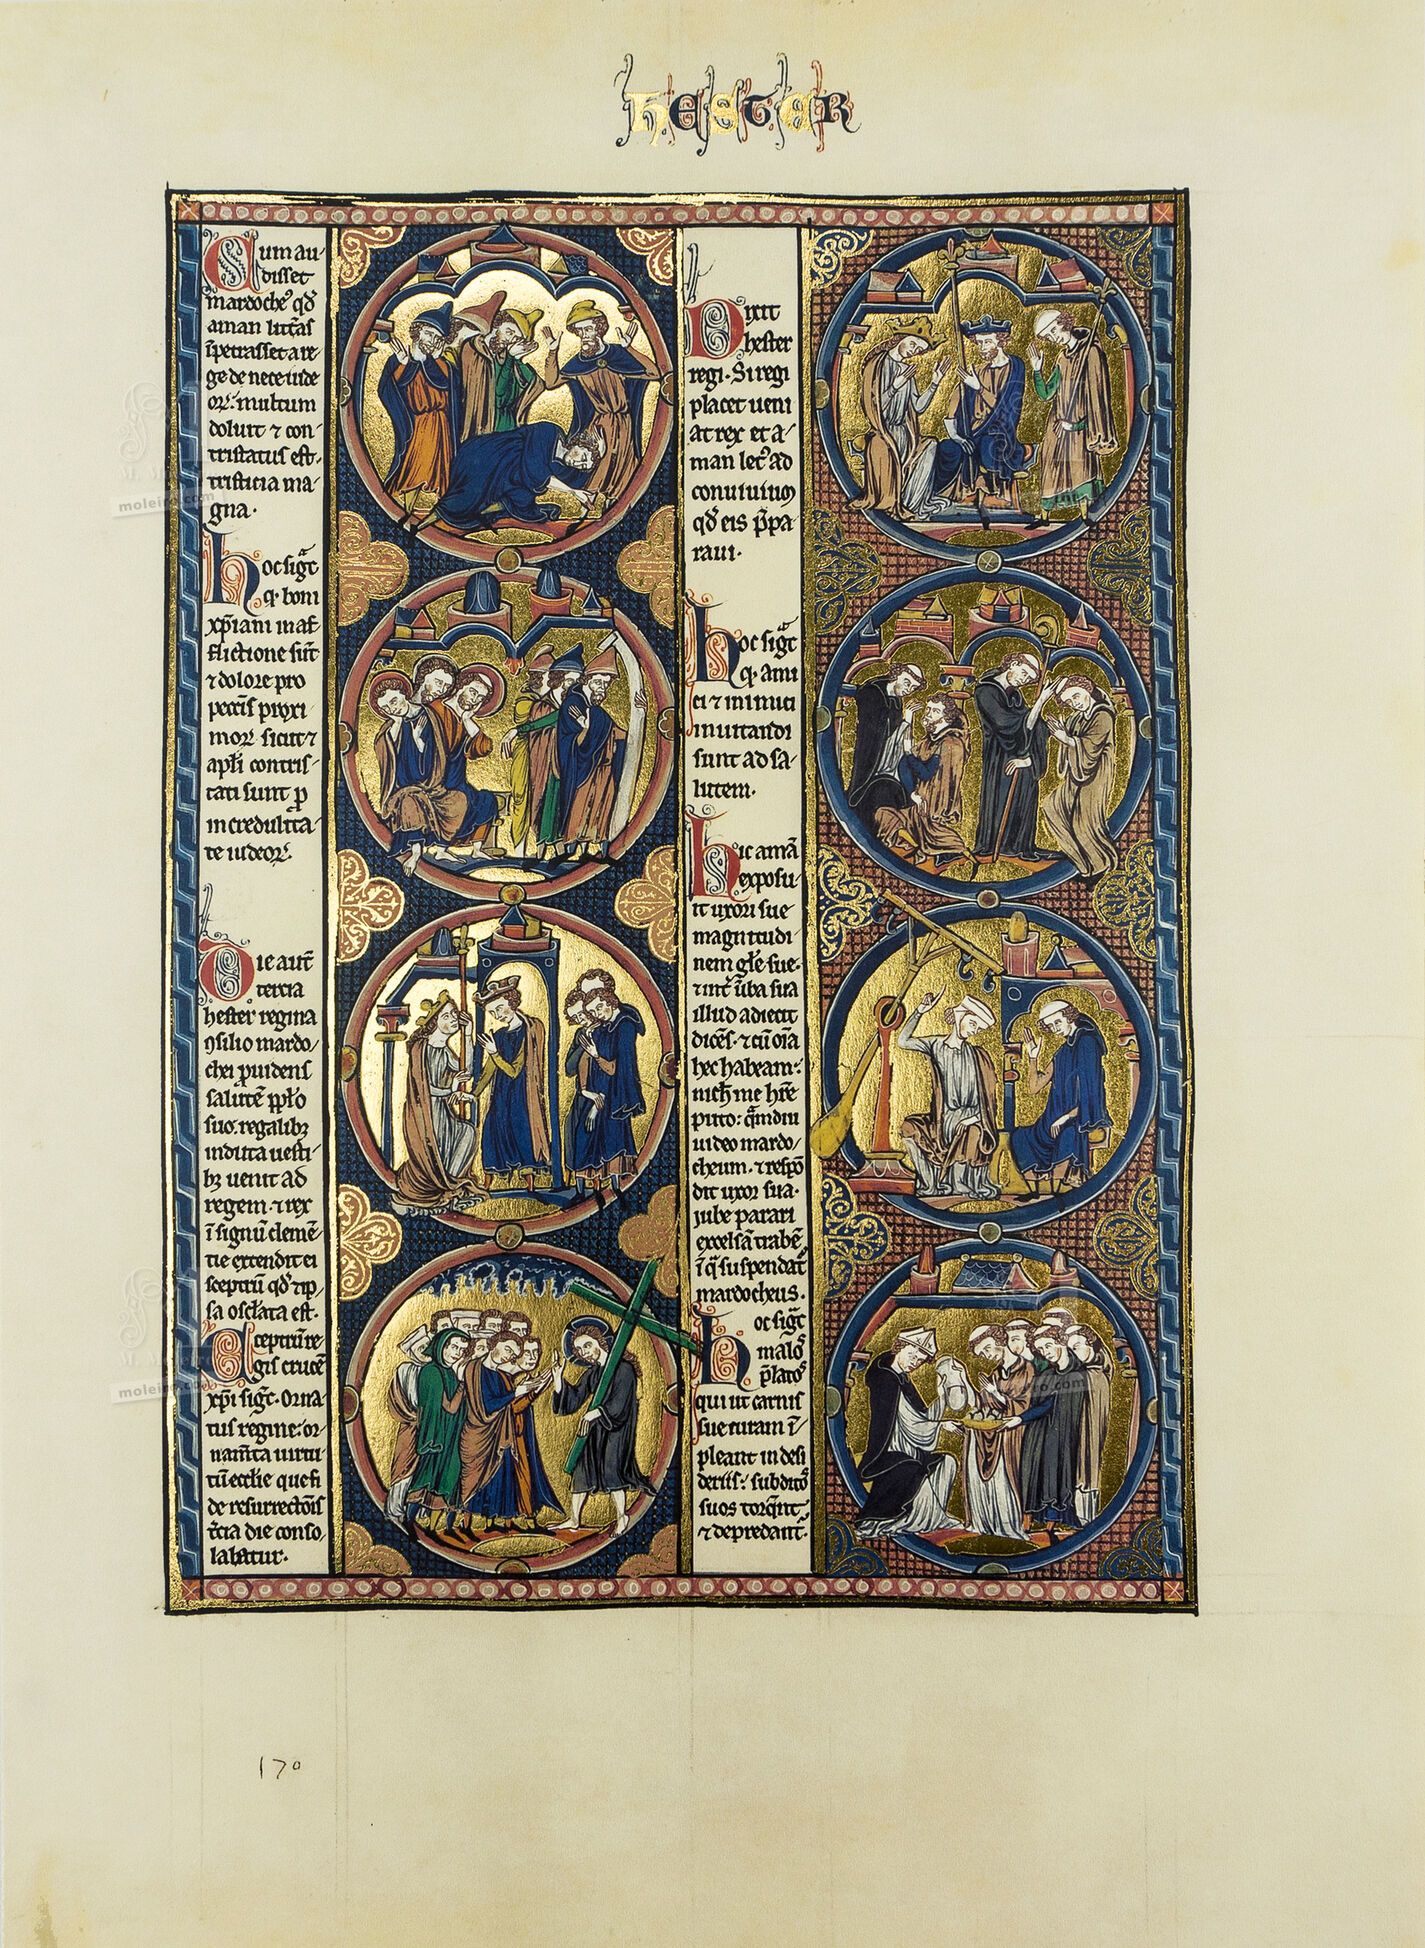 HESTER
Cum au-
disset
mardoche' qd'
aman litt̃as
ĩpetrasset a re-
ge de nece iude
oꝝ: multum
doluit ⁊ con-
tristatus est
tristicia ma-
gna.
hoc sig̃t
q' boni
xp̃iani in af-
flictione sũt
⁊ dolore pro
pecc̃is proxi
moꝝ sicut ⁊
apl̃i contris-
tati sunt ꝓ
incredulita-
te iudeoꝝ.
Die aut̃
tercia
hester regina
ꝯsilio mardo-
chei ꝓuidens
salutẽ ppl̃o
suo: regalibꝫ
induta uesti-
bꝫ uenit ad
regem. ⁊ rex
ĩ signũ clemẽ-
tie extendit ei
sceptrũ qd' ip-
sa osc̃lata est.
Sceptrũ re-
gis crucẽ
xp̃i sig̃t. Orna-
tus regine: or-
nam̃ta uirtu
tũ eccl̃ie que fi
de resurrect̃ois
t̃cia die conso-
labatur.
Dixit
hester
regi. Si regi
placet ueni
at rex et a-
man lec' ad
conuiuiũ
qd' eis p̃pa-
raui.
hoc sig̃t
q' ami
ci ⁊ inimici
inuitandi
sunt ad sa-
lutem.
hic amã
exposu-
it uxori sue
magnitudi-
nem gl̃e sue.
⁊ int̃ ũba sua
illud adiecit
dicẽs. ⁊ cũ oĩa
hec habeam:
nich̃ me hr̃e
puto: q̃mdiu
uideo mardo-
cheum. ⁊ respõ
dit uxor sua.
jube parari
excelsã trabẽ
ĩ q̃ suspendat̃
mardocheus.
hoc sig̃t
malos
p̃latos
qui ut carnis
sue curam ĩ-
pleant in desi
deriis: subditos
suos torq̃nt
⁊ depredant̃.
170
M. Moleiro
moleiro.com
M. Moleiro
moleiro.com
moleiro.com